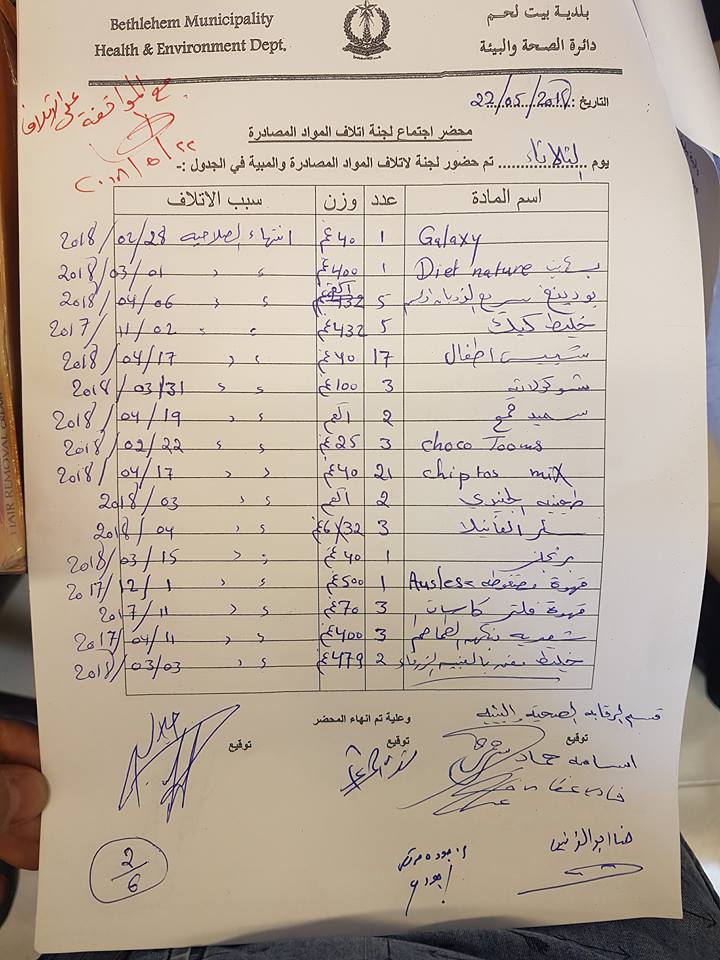 Bethlehem Municipality
Health & Environment Dept.
بلدية بيت لحم
دائرة الصحة والبيئة
مع الموافقة على الاتلاف
٢٠١٨/٥/٢٢
التاريخ: 22/05/2018
محضر اجتماع لجنة اتلاف المواد المصادرة
يوم الثلاثاء تم حضور لجنة لاتلاف المواد المصادرة والمبية في الجدول :-
اسم المادة عدد وزن سبب الاتلاف
Galaxy 1 40غم انتهاء الصلاحيه 2018/02/28
Diet nature 1 400غم 2018/03/01
بودينغ سريع 5 2018/04/06
خليط كيك 5 432غم 2017/11/02
شيبس اطفال 17 40غم 2018/04/17
شوكولاته 3 100غم 2018/03/31
سميد قمح 2 1كغم 2018/04/19
choco Tooms 3 25غم 2018/02/22
chiptos mix 21 40غم 2018/04/17
طحينيه الجنيدي 2 1كغم 2018/03
سكر الفانيلا 3 2018/04
1 40غم 2018/03/15
قهوة 1 500غم 2017/12/1
قهوة فلتر كاسات 3 70غم 2017/11
شعيريه بنكهه الطماطم 3 400غم 2017/04/11
خليط 2 479غم 2018/03/03
قسم الرقابه الصحيه والبيئيه
وعلية تم انهاء المحضر
توقيع توقيع توقيع
اسامه حماد
2/6
HAIR REMOVAL CREAM